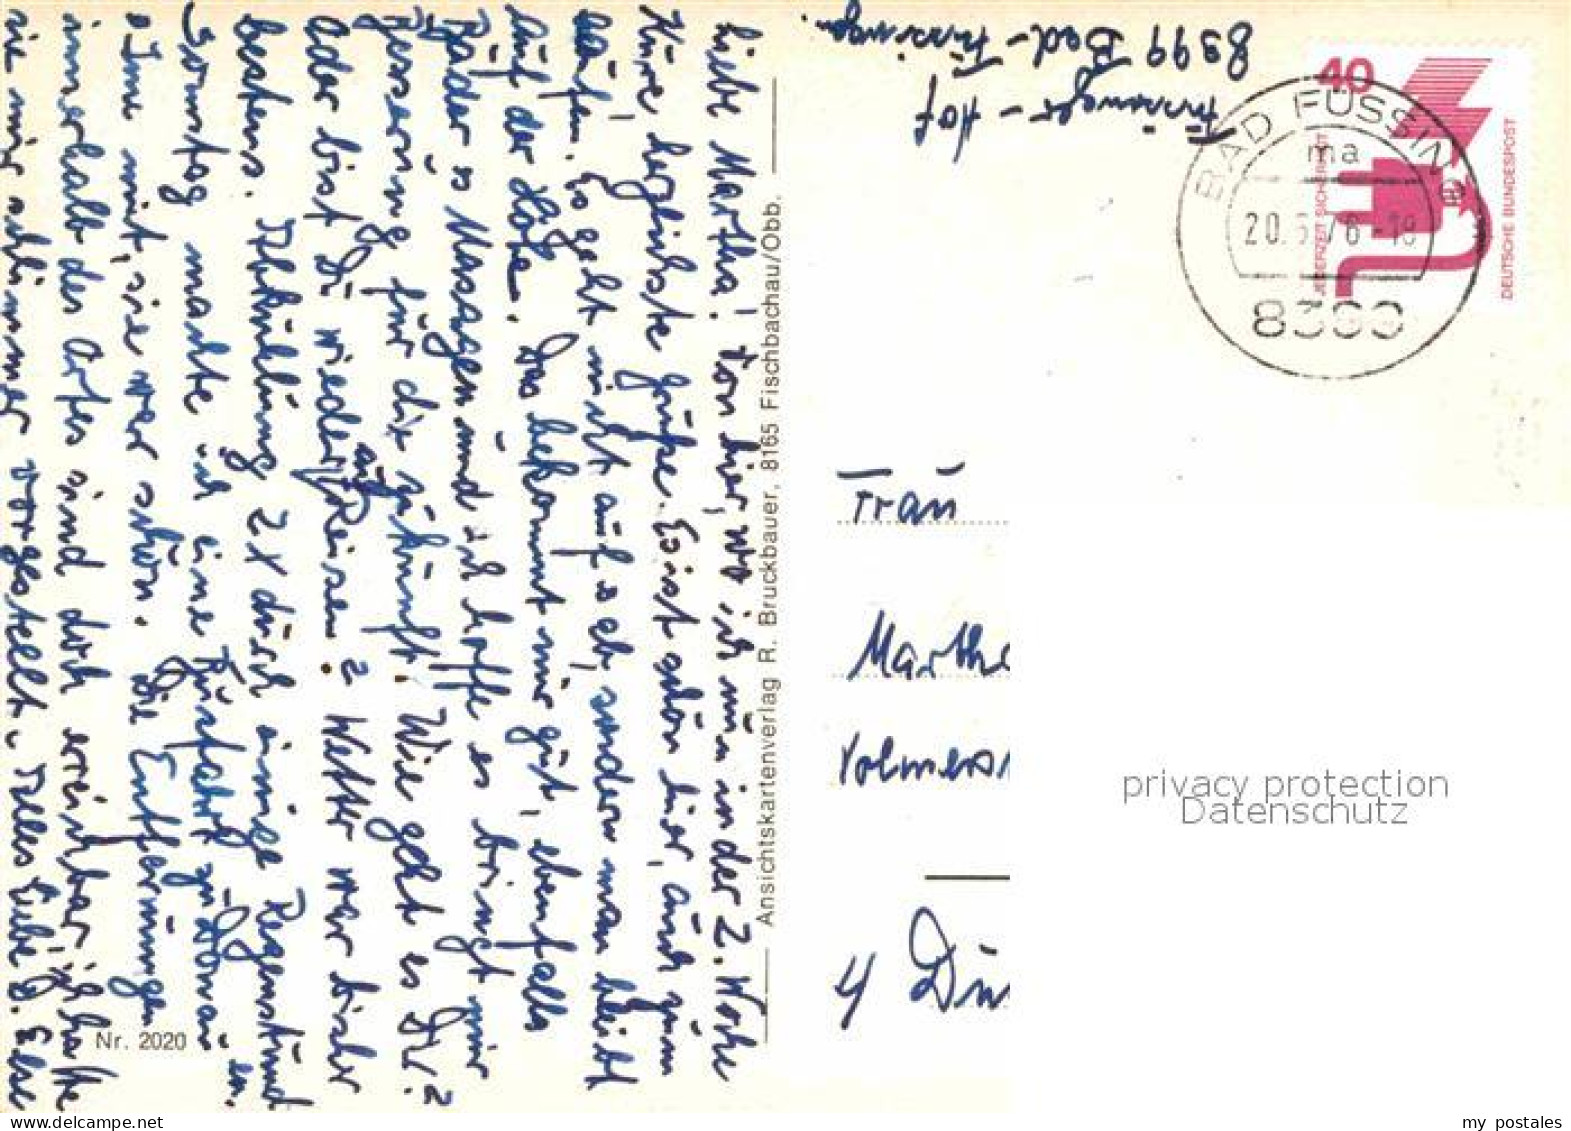 Liebe Martha! Von hier, wo ich nun in der 2. Woche
Küre, herzlichste Grüße. Es ist schön hier, auch zum
laufen. Es geht nicht auf & ab, sondern man bleibt
auf der Höhe. Das bekommt mir gut, ebenfalls
Bäder & Massagen und ich hoffe es bringt mir
Besserung für die zukunft. Wie geht es Dir?
Oder bist Du wieder auf Reisen? Wetter war bisher
bestens. Abkühlung 2x durch einige Regenstund
en.
Sonntag machte ich eine Busfahrt z. Donau
& Inn mit, sie war schön. Die Entfernungen
innerhalb des Ortes sind doch erreinbar, ich hatte
sie mir schlimmer vorgestellt. Alles Liebe D. Else
Ansichtskartenverlag R. Bruckbauer, 8165 Fischbachau/Obb.
Nr. 2020
Füssinger-Hof
8399 Bad-Füssingen.
40
JEDERZEIT SICHERHEIT
DEUTSCHE BUNDESPOST
BAD FÜSSING
ma
20. 76-18
Frau
Martha
Volmers
4 Dü
privacy protection
Datenschutz
www.delcampe.net
my_postales